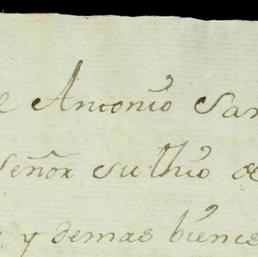 Antonio San
señor su thio de
y demas bienes